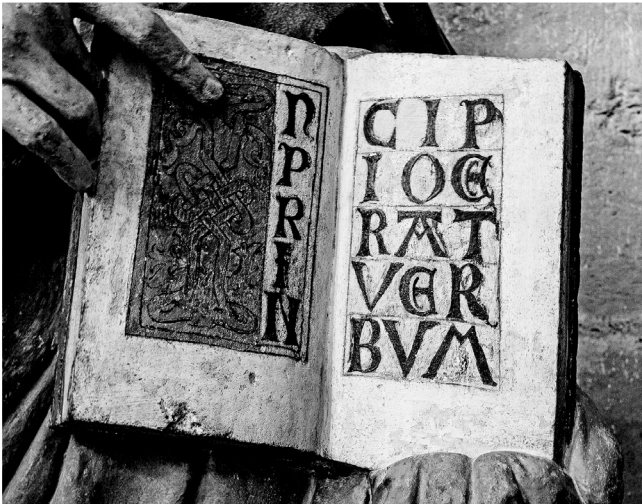 N
P
R
I
N
CIP
IOE
RAT
VER
BVM